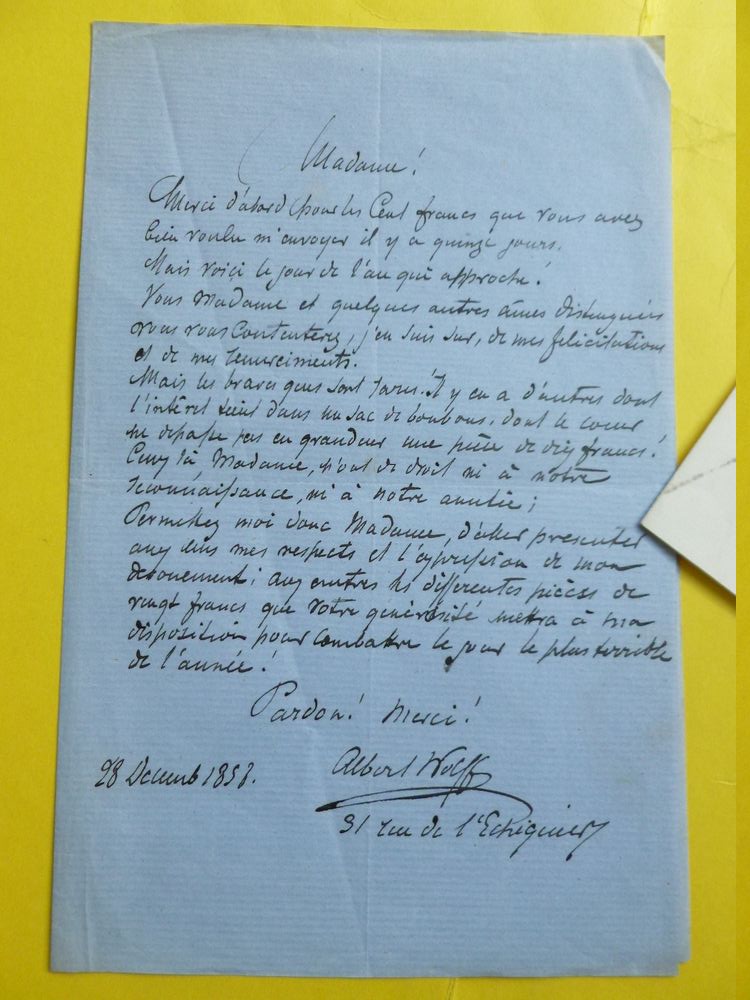 Madame!
Merci d'abord pour les Cent francs que vous avez
bien voulu m'envoyer il y a quinze jours.
Mais voici le jour de l'an qui approche!
Vous Madame et quelques autres âmes distinguées
vous vous contenterez, j'en suis sur, de mes félicitations
et de mes remerciements.
Mais les braves gens sont rares! Il y en a d'autres dont
l'intérêt dans un sac de bonbons, dont le coeur
ne dépasse pas en grandeur une pièce de dix francs!
Ceux là, Madame, n'ont de droit ni à notre
reconnaissance, ni à notre amitié;
Permettez moi donc Madame, d'aller présenter
aux uns mes respects et l'expression de mon
dévouement; aux autres les différentes pièces de
vingt francs que votre générosité mettra à ma
disposition pour combattre le jour le plus terrible
de l'année!
Pardon! Merci!
Albert Wolff
28 Decemb 1858.
31 rue de l'Echiquier